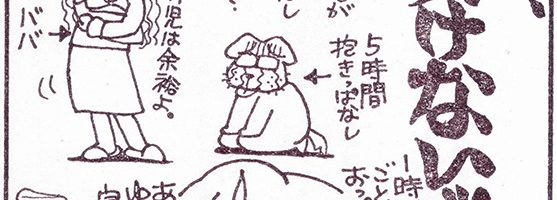 けない
1時
ごと
おっ
5時間
抱きっぱなし
が
なし
児は余裕よ。
ババ
あ
ゆ